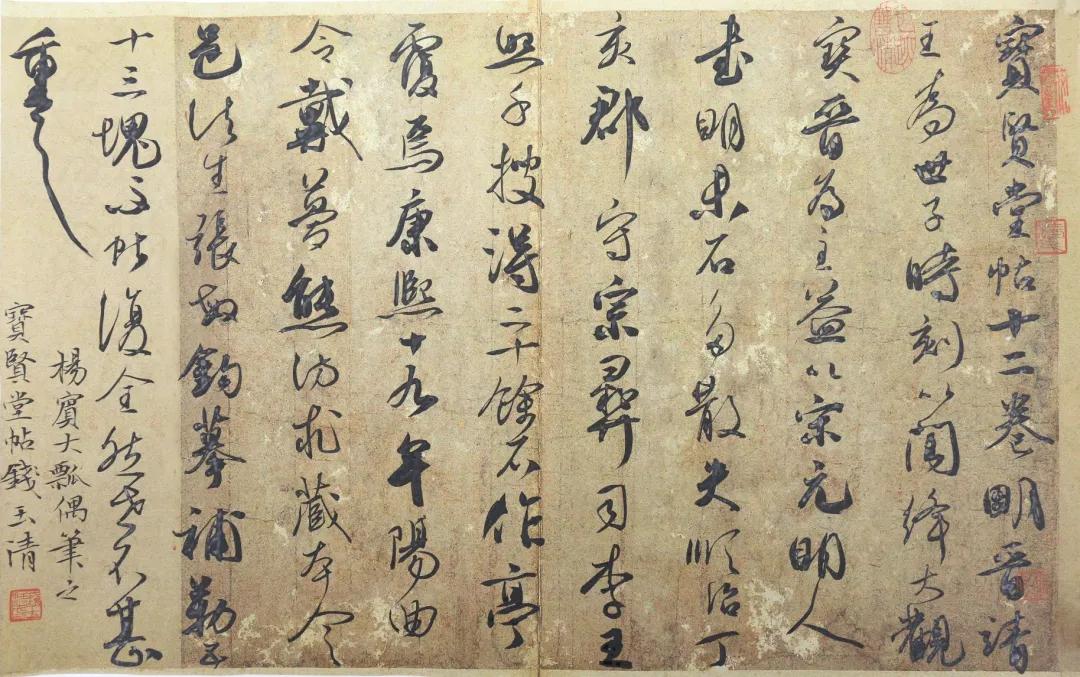 寶賢堂帖廿二卷明晉靖
王為世子時刻以閣絳大觀
寶晉為主益以宋元明人
書明末石多散失順治丁
亥郡守宗彝司李王
與手搜得二十餘石作亭
覆焉康熙十九年陽曲
令戴夢熊訪求藏本令
邑諸生張敏鉤摹補勒五
十三塊而帖復全然世不甚
重之
楊賓大瓢偶筆之
寶賢堂帖錢玉清